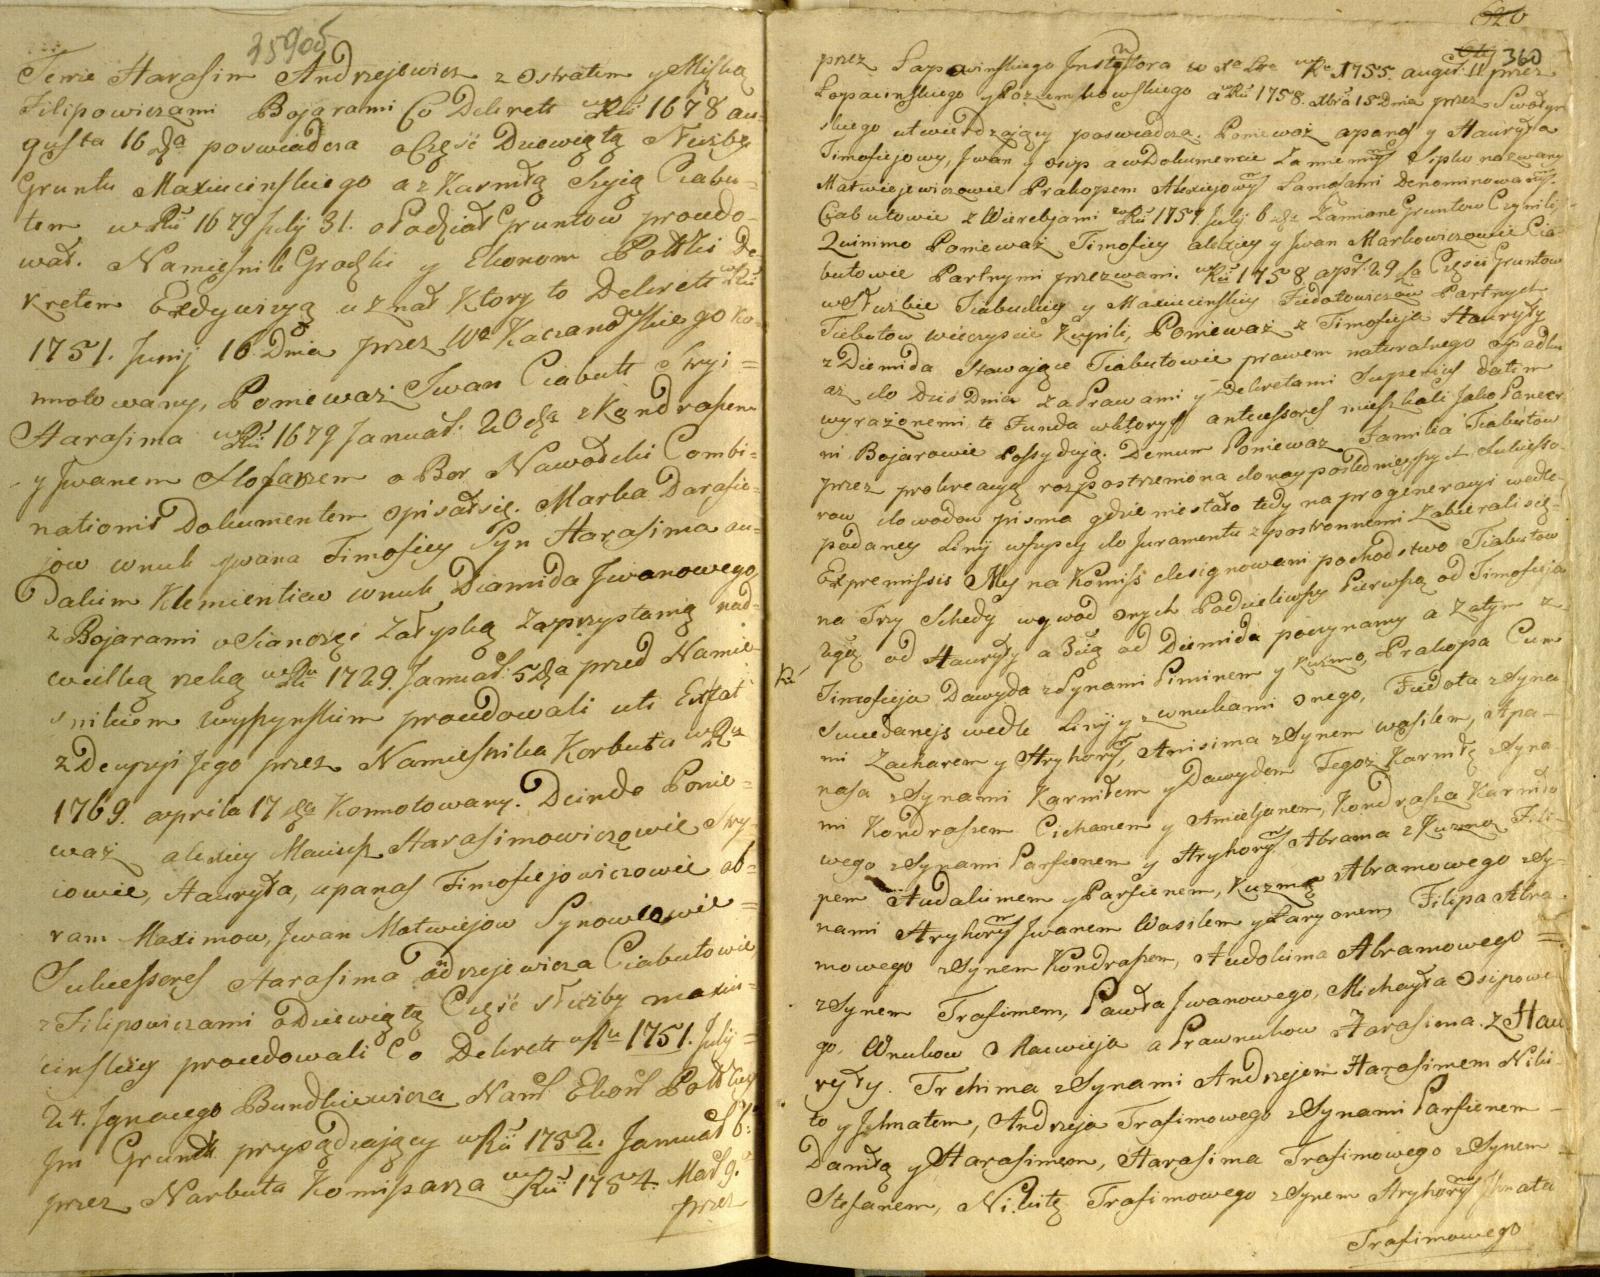 359 об
Terie Harasim Andrzejewicz z Ostratem y Miską
Filipowiczami Bojarami Co Dekrett w Rku 1678 au-
gusta 16 dnia poswiadcza o Część Dziewiątą Służby
Gruntu Maxiucinskiego a z Karniłą Szyią Ciabu=
tem w Rku 1679 July 31. o Podział Gruntow prowdo-
wał. Namiesnik Grodzki y Ekonom Połłcki De-
kretem Exdywizyą uznał Ktory to Dekrett w Rku
1751. Junij 16 Dnia przez Wo Kaczanowskiego ko-
nnotowany, Poniewaz Iwan Ciabutt Stryi=
Harasima w Rku 1679 Januar: 20 dnia z Kondraszem
y Iwanem Slofarzem o Bor Nawodzki Combi=
nationis Dokumentem opisał się. Marka Darafie=
jow wnuk Iwana Timofiey Syn Harasima au=
Dakim Klemientiew wnuk Diamida Iwanowego
z Bojarami o Sianozęć Załyską Zaprzystanią nad=
wielką rzeką w Rku 1729. Januar: 5 Dnia przed Namie
snikiem Wyszynskim prowdowali uti Extat
z Decyzyi Jego przez Namiesnika Korbuta w Rku
1769. aprila 17 dnia Konnotowany. Deinde Ponie=
waz alexiey Maciey Harasimowiczowie Stry-
iowie, Hauryła, apanas Timofiejowiczowie ab=
ram Maximow, Iwan Matwiejow Synowcowie=
Sukcessores Harasima andrzejewicza Ciabutowie
z Filipowiczami o Dziewiątą Część służby maxiu=
cinskiey prowdowali Co Dekrett w Rku 1751. July=
24. Ignacego Bundkiewicza Nams Ekons Połłckieg
Im Grunt przysądzający w Rku 1752. Januar 6.
przez Narbuta Komisarza w Rku 1754. Mar 9.
przez
620
360
przez Łapowinskiego Instygtora w Rku 1755. august 11 przez
Łopacinskiego y Pozumkowskiego a w Rku 1758. Xbra 15 Dnia przez Swołyn
skiego utwierdzający poswiadcza. Poniewaz apanas y Hauryła
Timofiejowy, Iwan y osip a w Dokumencie Zamiennym Sipko nazwany
Matwiejewiczowie Prakopem Alexiejowym Samosami Denominowanym.
Ciabutowie z Wierebjami w Rku 1757 July 6 dnia Zamianę Gruntow Czynili
Quinimo Poniewaz Timofiey alexiey y Iwan Markowiczowie Cia-
butowie Partnymi przezwani. w Rku 1758 apr: 29 Część Gruntow
w Służbie Ciabuckiey y Maxiucinskiey Fiedotowiczow Partnych
Ciebutow wieczyscie Kupili, Poniewaz z Timofieja Hauryły
z Diemida Stawające Ciabutowie prawem naturalnego spadku
az do Dziś Dnia za Prawami y Dekretami Superius datim
wyrażonemi te Funda w ktorych antecessores mieszkali Jako Pancer
ni Bojarowie Possydują. Demum Poniewaz Familia Ciabutow
przez prokreacyą rozpostrzeniona do naypoślednieyszych Sukcesso-
row dowodow pisma gdzie nie stało tedy na progeneracyi wedle-
podaney Linij wszyscy do Juramentu z postronnemi Zabierali się-
Expremissis My na Komiss designowani pochodstwo Ciabutow
na Trzy Schedy wywod onych Podzieliwszy Pierwszą od Timofieja
2gą od Hauryły a 3cią od Diemida poczynamy a Zatym z
Timofieja Dawyda z Synami Piminem y Kuzmą, Prakopa Cum
Succedaneis wedle Linij y z wnukami onego, Fiedota z Syna
mi Zacharem y Hryhorym, Anisima z Synem wasilem, Apa-
nasa z Synami Karniłem y Dawydem Tegoz Karniły z Syna
mi Kondraszem Cichanem y Amieljanem, Kondrasza Karniło
wego z Synami Parfienem y Hryhorym Abrama z Kuzmą Fili-
pem Audakimem y Parfienem, Kuzmę Abramowego z Sy-
nami Hryhorym Iwanem Wasilem y Laryonem, Filipa Abra
mowego z Synem Kondraszem, Audokima Abramowego=
z Synem Trafimem, Pawła Iwanowego, Michayła Osipowe
go. Wnukow Macwieja a Prawnukow Harasima. Z Hau
ryły. Trchima z Synami Andrzejem Harasimem Niki-
to y Ihnatem, Andrzeja Trafimowego z Synami Parfienem-
Daniłą y Harasimem, Harasima Trafimowego z Synem
Stefanem, Nikitę Trafimowego z Synem Hryhorym Ihnata
Trafimowego